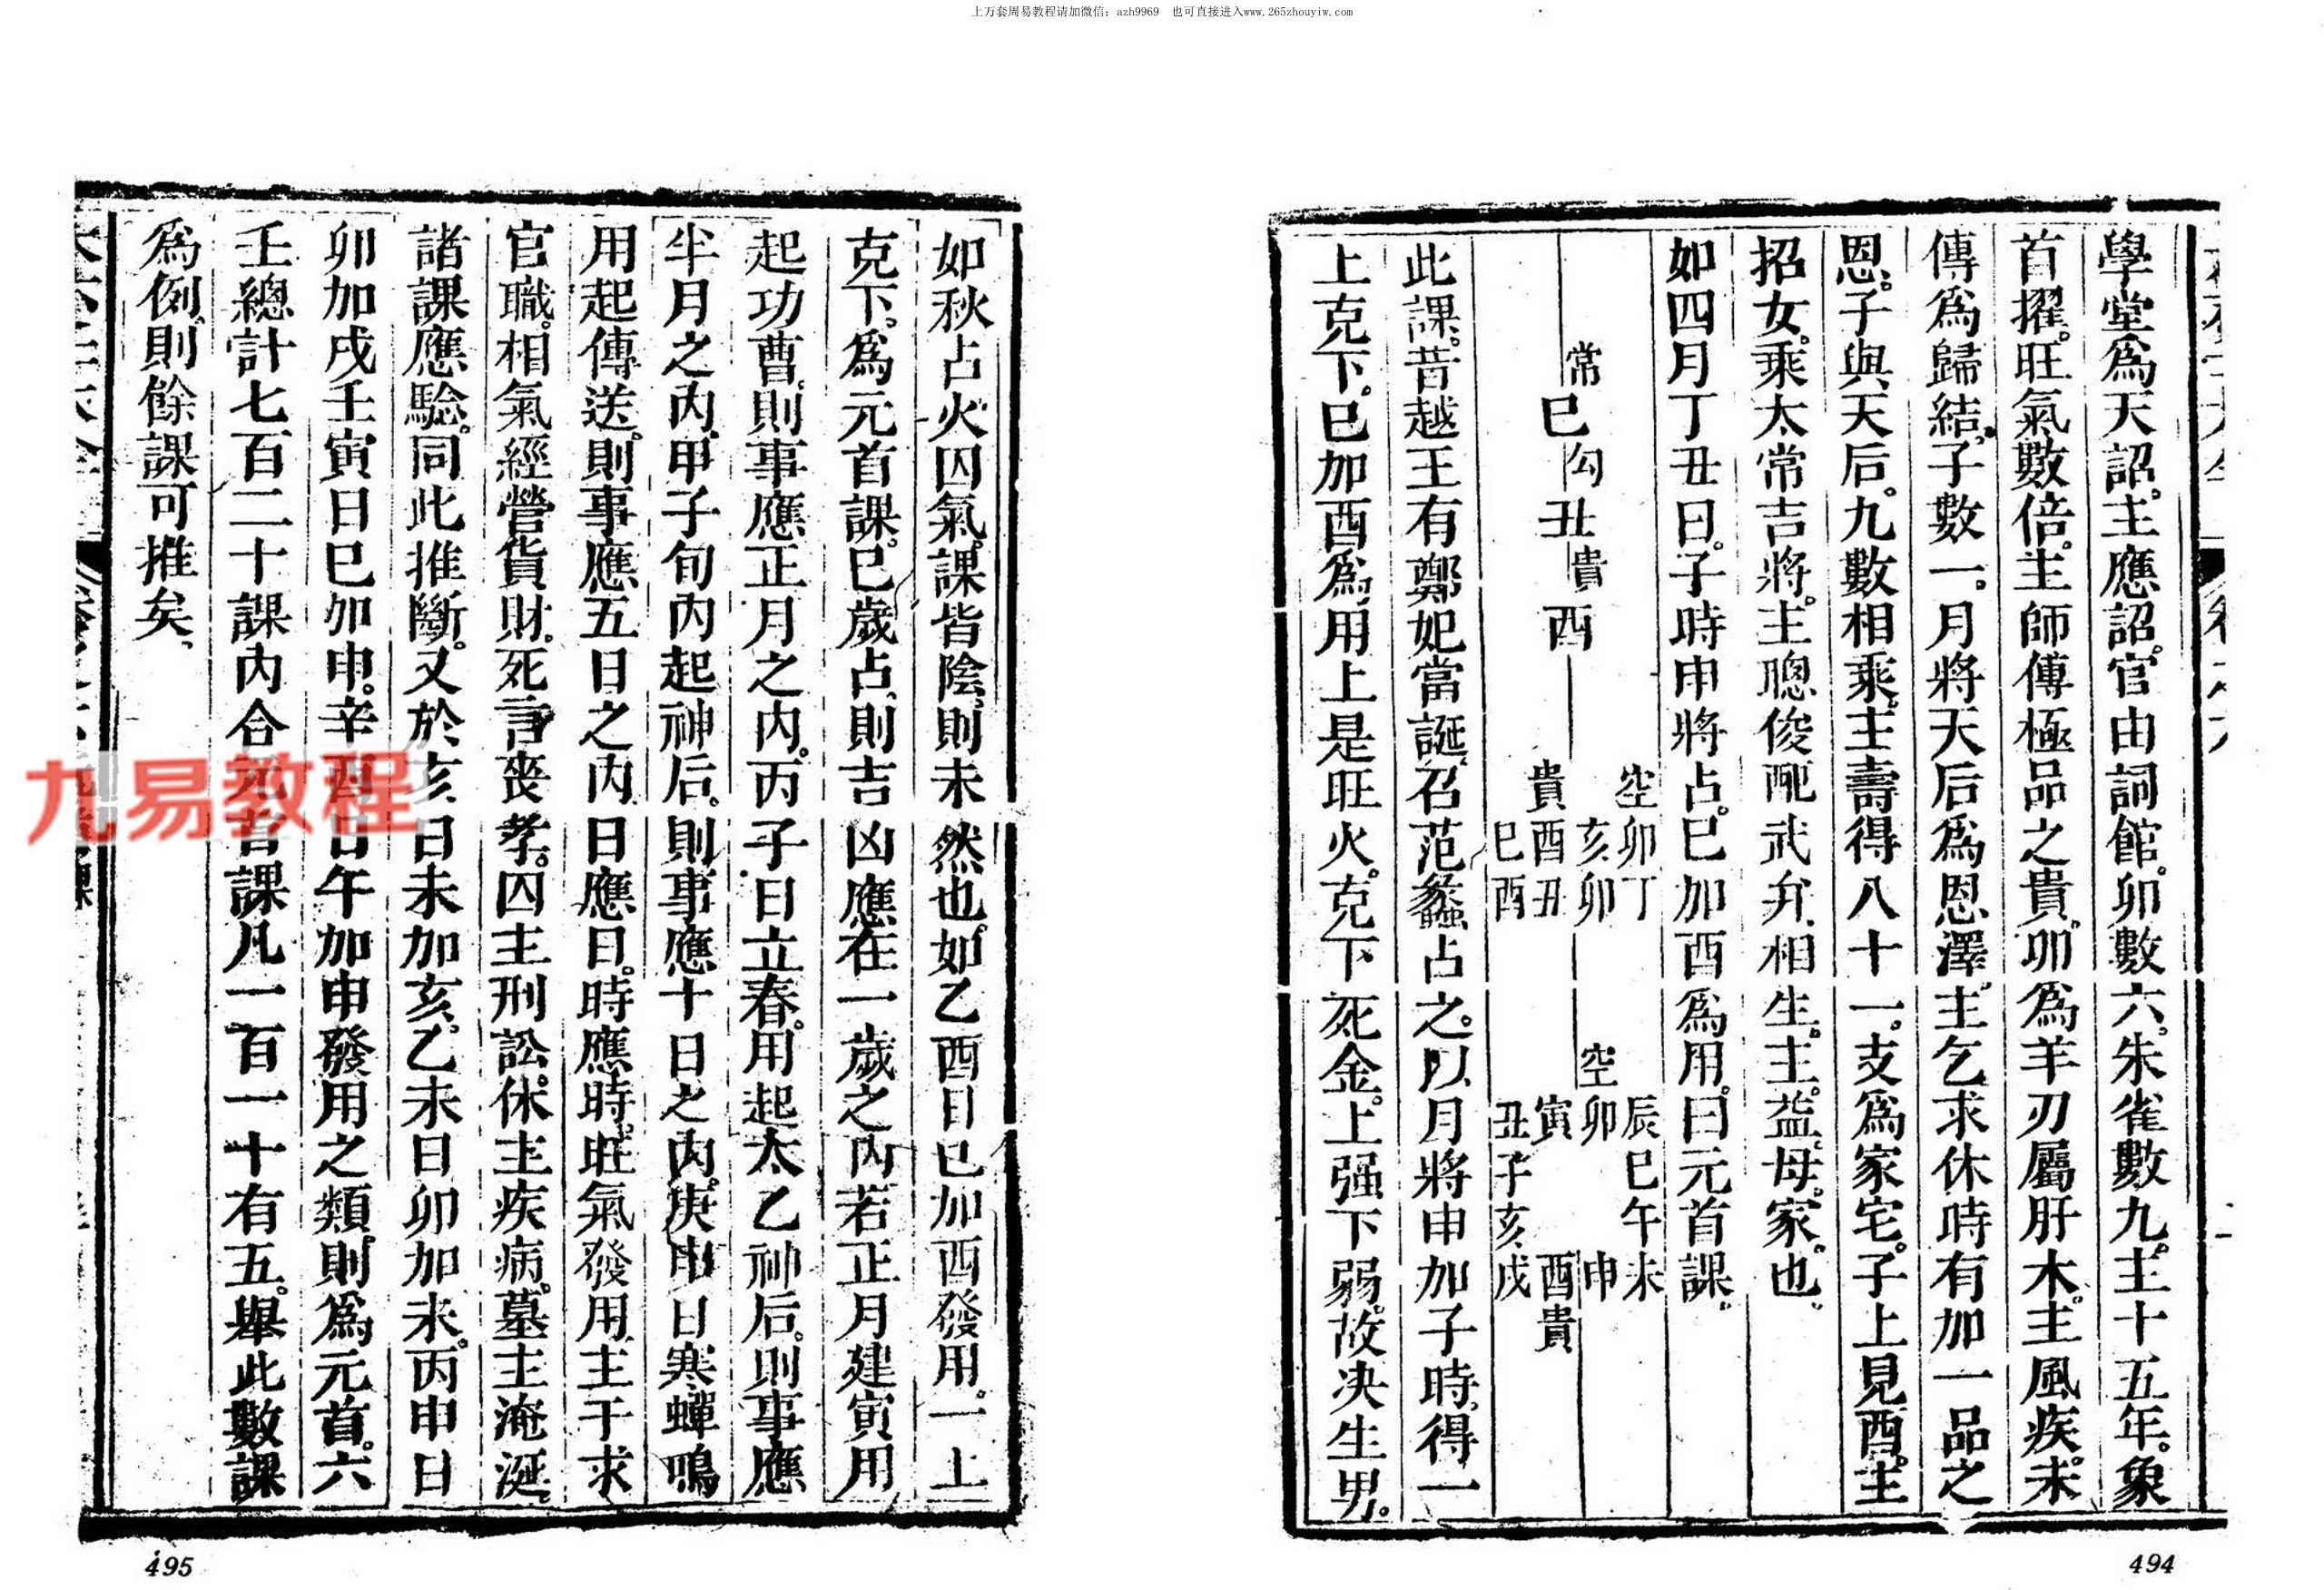 上万套周易教程请加微信：azh9969　也可直接进入www.265zhouyiw.com
學堂爲天詔。主應詔。官由詞館。卯數六。朱雀數九。主十五年。象
首擢。旺氣數倍。主師傅極品之貴。卯爲羊刃屬肝木。主風疾。未
傳爲歸結。子數一。月將天后爲恩澤。主乞求休時有加一品之
恩。子與天后。九數相乘。主壽得八十一。支爲家宅。子上見酉。主
招女。乘太常吉將。主聰俊配武弁、相生。主。益。母。家。也、
如四月丁丑日。子時申將占。巳加酉爲用。曰元首課。
常
巳
勾
丑
貴
酉
空　貴
卯亥酉巳
丁卯丑酉
空
辰卯寅丑
巳　子
午　亥
未申酉戌
貴
此課。昔越王有鄭妃當誕、召范蠡占之。以月將申加子時、得一
上克下。巳加酉爲用、上是旺火。克下死金。上强下弱。故决生男。
494
如秋占火囚氣。課皆陰、則未然也。如乙酉日巳加酉發用。一上
克下。爲元首課。巳歲占、則吉凶應在一歲之內。若正月建寅用
起功曹、則事應正月之內。丙子日立春。用起太乙神后、則事應
半月之內、甲子旬內起神后。則事應十日之內。庚申日寒蟬鳴
用起傳送。則事應五日之內。日應日。時應時。旺氣發用、主干求
官職。相氣經營貨財。死言喪孝。囚主刑訟。休主疾病。墓主淹涎。
諸課應驗。同此推斷。又於亥日未加亥。乙未日卯加未。丙申日
卯加戌壬寅日巳加申。辛酉日午加申發用之類。則爲元首。六
壬總計七百二十課內合元首課凡一百一十有五。舉此數課
爲例、則餘課可推矣、
495
九易教程